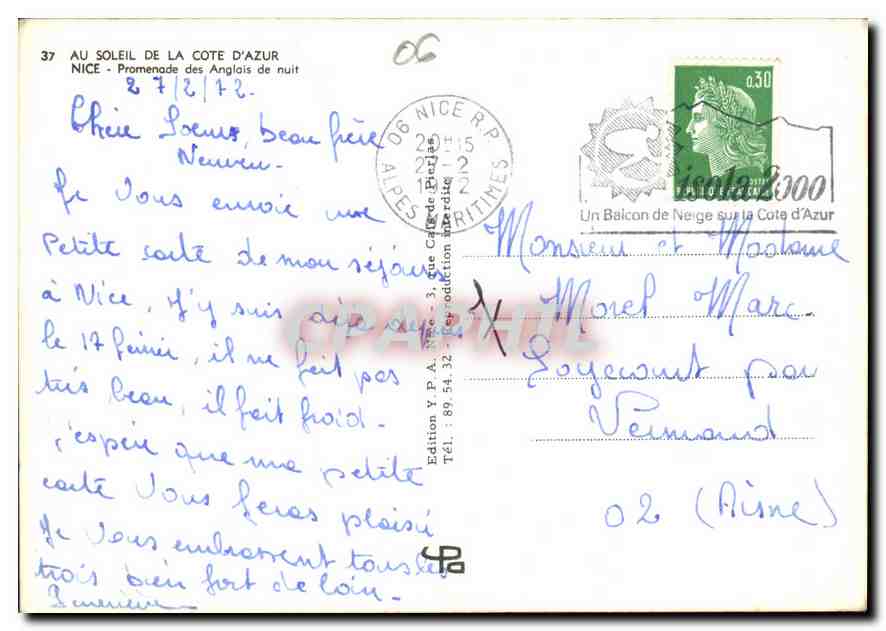 37 AU SOLEIL DE LA COTE D'AZUR
NICE - Promenade des Anglais de nuit
06
27/2/72.
Chère Soeurs, beau frère
Neuveu -
Je Vous envoie une
Petite carte de mon séjours
à Nice, J'y suis depuis
le 17 février, il ne fait pas
très beau, il fait froid -
j'espère que ma petite
carte Vous feras plaisir
Je Vous embrassent tous les
trois bien fort de loin -
Geneviève
06 NICE R.P.
27-2
ALPES MARITIMES
0,30
POSTES
REPUBLIQUE FRANCAISE
isola 2000
Un Balcon de Neige sur la Cote d'Azur
Edition Y. P. A. Nice - 3, rue Cais de Pierlas
Tél. : 89.54.32 - Reproduction interdite
Monsieur et Madame
Morel Marc -
Soyecourt par
Vermand
02 (Aisne)
ypa
CPAPHIL